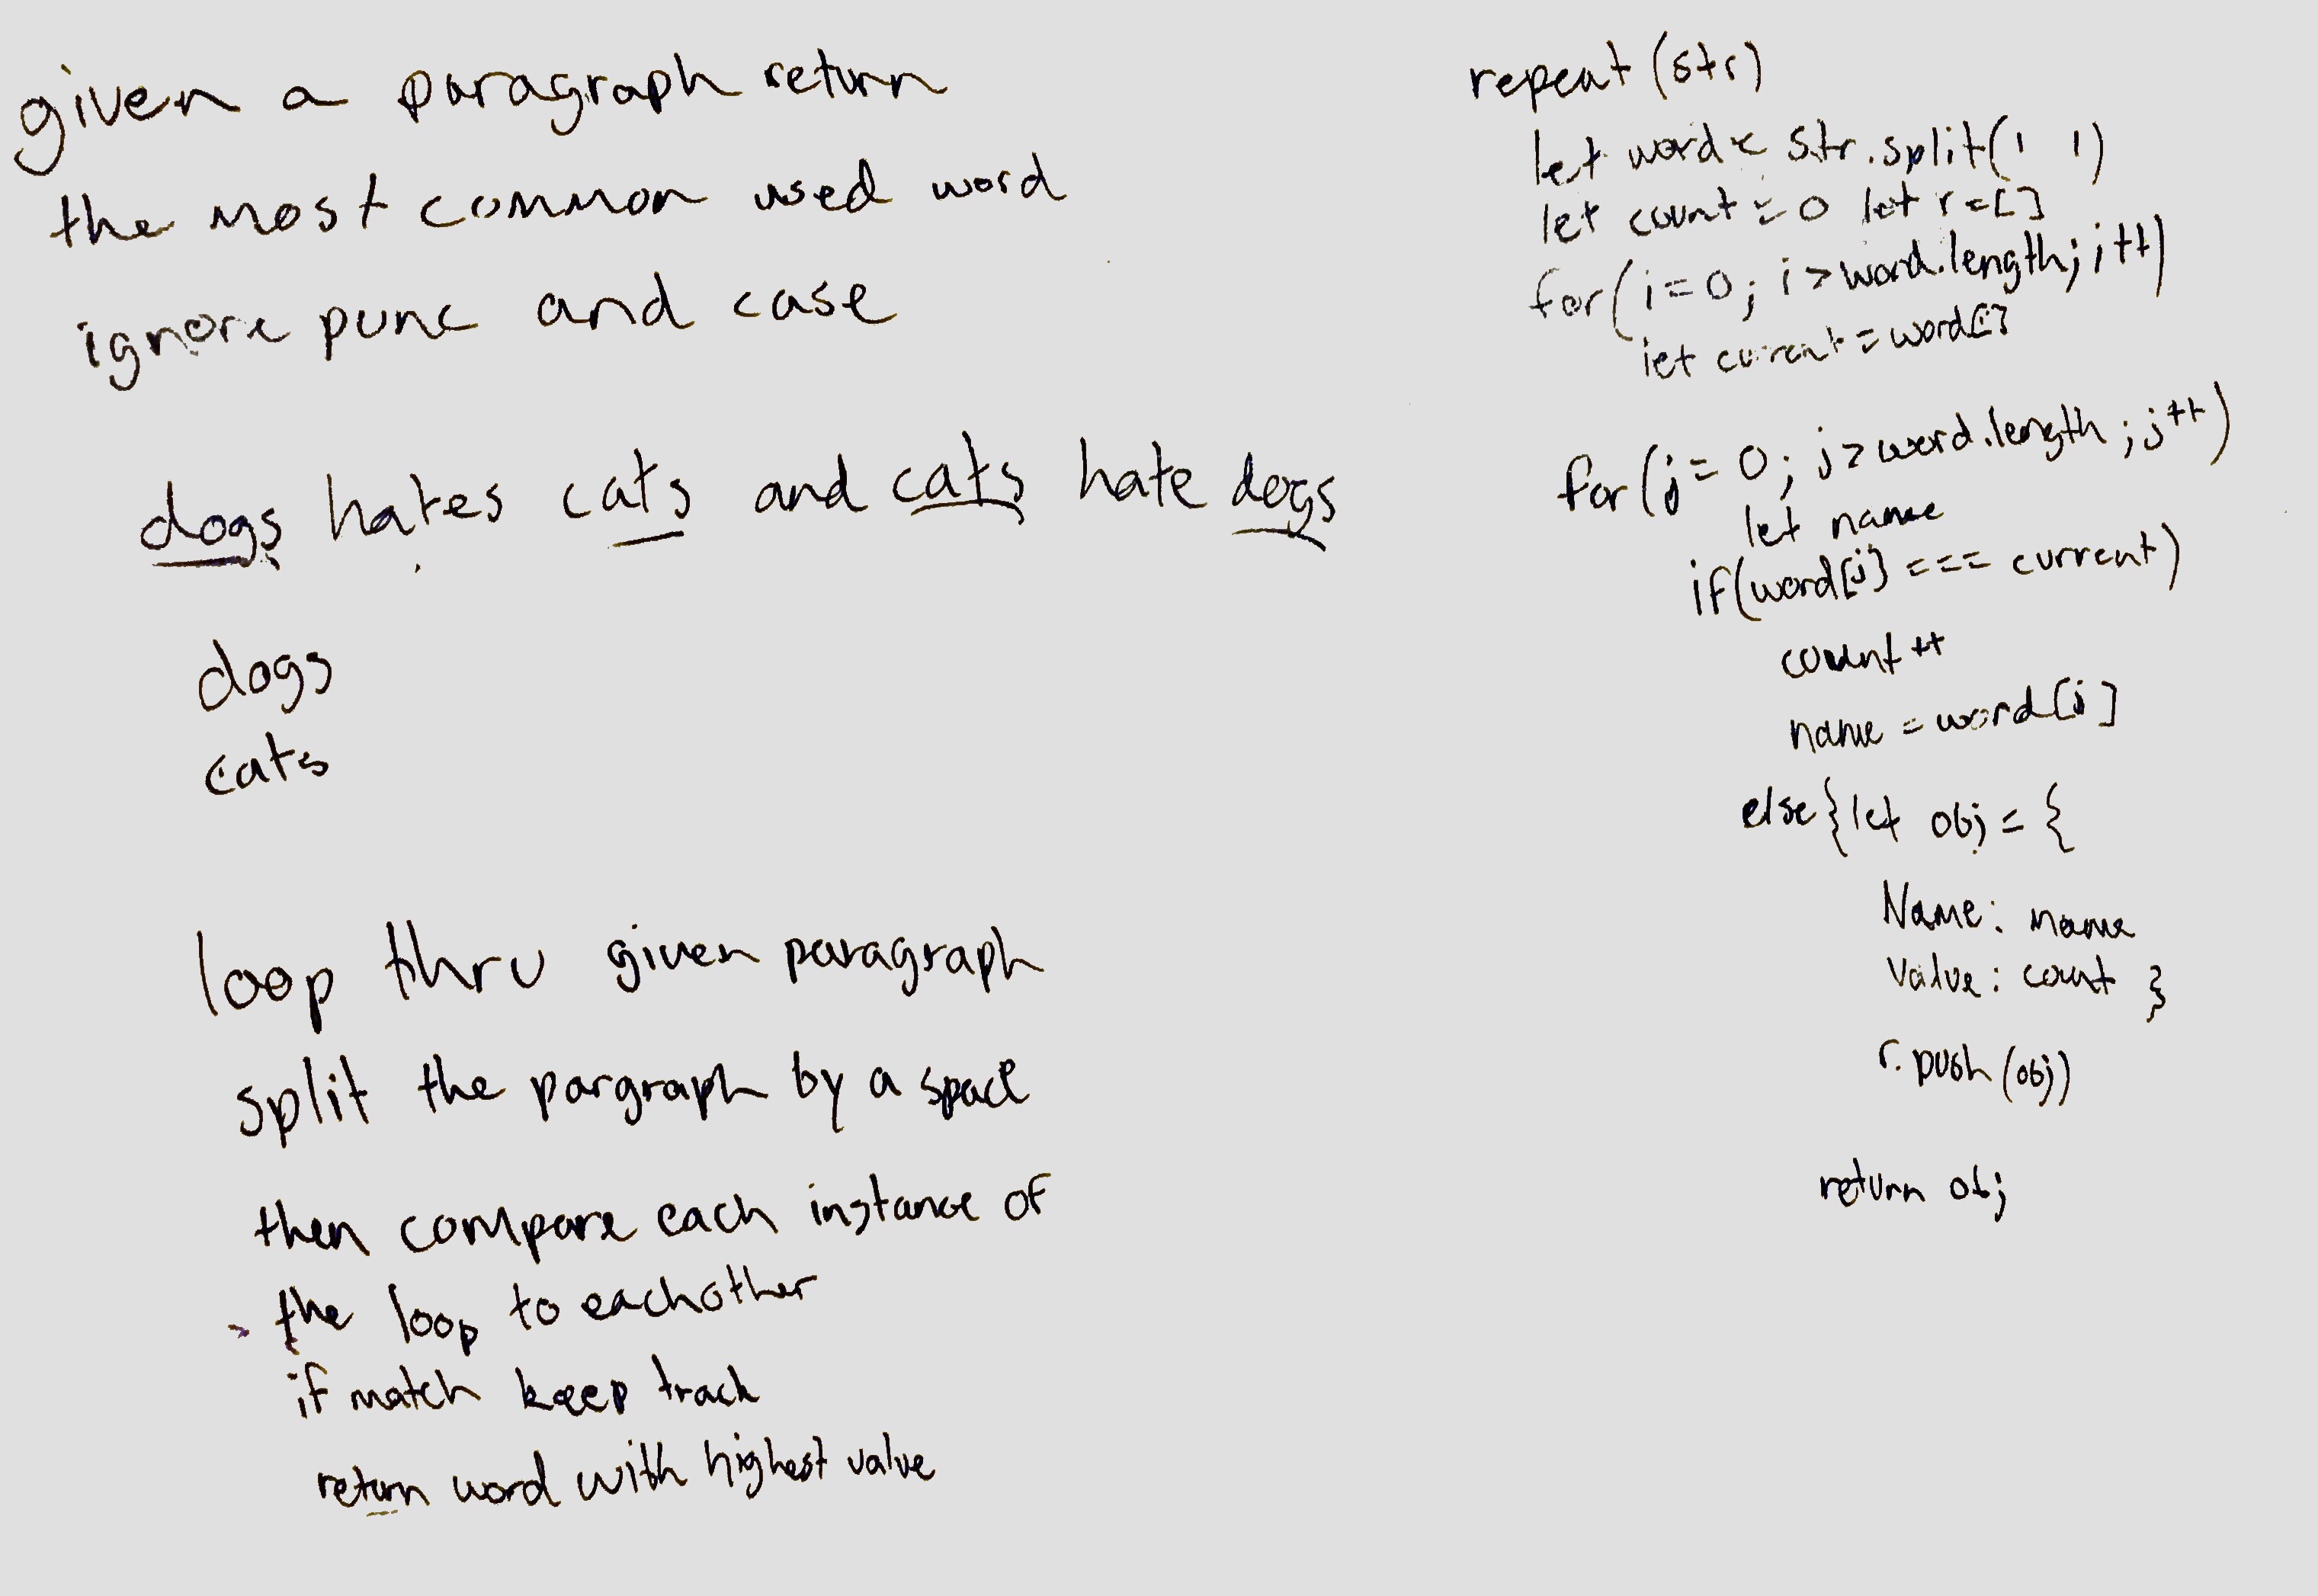 given a paragraph return
the most common used word
ignore punc and case
dogs hates cats and cats hate dogs
dogs
cats
loop thru given paragraph
split the pargraph by a space
then compare each instance of
the loop to eachother
if match keep track
return word with highest value
repeat (str)
let word = str.split(' ')
let count = 0 let r = []
for (i=0; i > word.length; i++)
let current = word[i]
for (j = 0; j > word.length; j++)
let name
if (word[j] === current)
count++
name = word[j]
else { let obj = {
Name: name
Value: count }
r.push(obj)
return obj